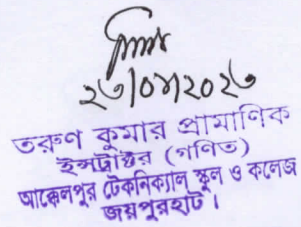 ২৩/০৮/২০২৩
তরুণ কুমার প্রামাণিক
ইন্সট্রাক্টর (গণিত)
আক্কেলপুর টেকনিক্যাল স্কুল ও কলেজ
জয়পুরহাট।